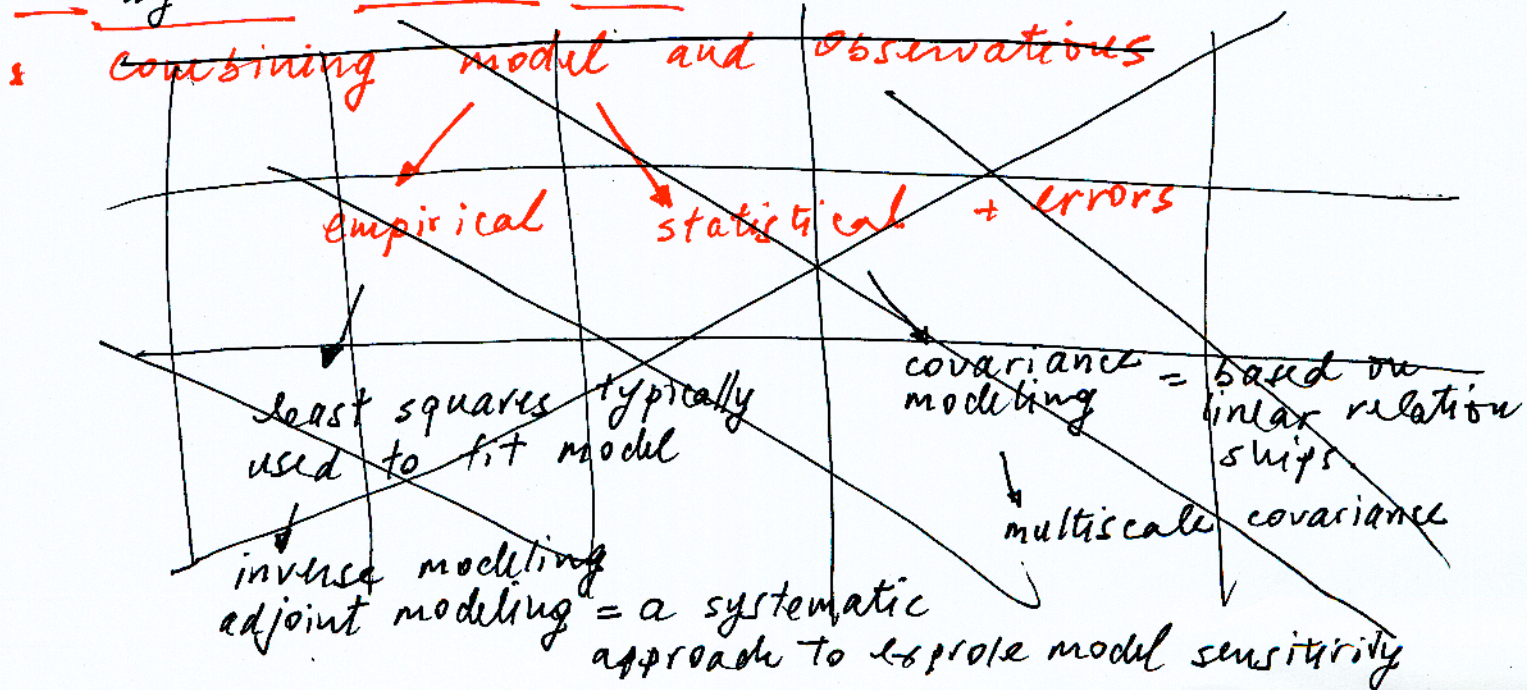 combining model and observations
empirical statistical + errors
least squares typically
used to fit model
covariance
modeling = based on
linear relation
ships
multiscale covariance
inverse modeling
adjoint modeling = a systematic
approach to exprole model sensitivity